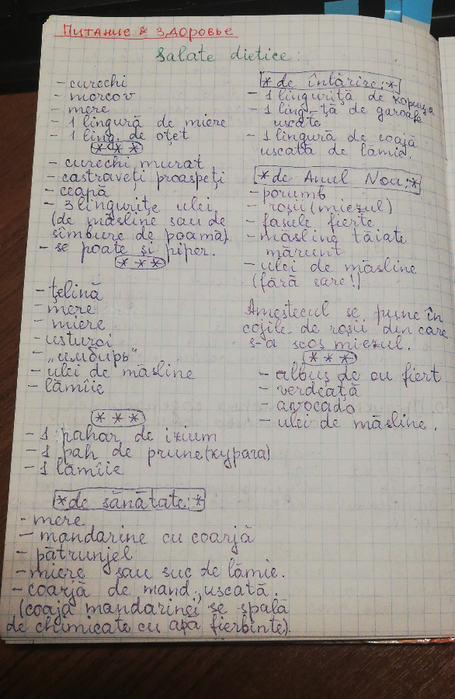 Питание & здоровье
Salate dietice:
- curechi
- morcov
- mere
- 1 lingură de miere
- 1 ling. de oțet
***
- curechi murat
- castraveți proaspeți
- ceapă
- 3 lingurițe ulei
(de măsline sau de
sîmbure de poamă)
- se poate și piper.
***
- țelină
- mere
- miere
- usturoi
- „имбирь"
- ulei de măsline
- lămîie
***
- 1 pahar de izium
- 1 pah de prune (курага)
- 1 lămîie
*de sănătate:*
- mere
- mandarine cu coarjă
- pătrunjel
- miere sau suc de lămîe.
- coarjă de mand. uscată.
(coaja mandarinei se spală
de chimicate cu apă fierbinte).
*de întărire:*
- 1 linguriță de корица
- 1 ling-ță de garoafe
uscate.
- 1 lingură de coajă
uscată de lămîe.
*de Anul Nou:*
- porumb
- roșii (miezul)
- fasule fierte
- măsline tăiate
mărunt
- ulei de măsline
(fără sare!)
Amestecul se pune în
cojile de roșii din care
s-a scos miezul.
***
- albuș de ou fiert
- verdeață
- avocado
- ulei de măsline.